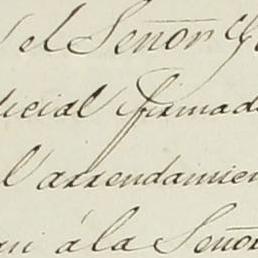 el Señor
icial firmad
l arrendamien
á la Señor